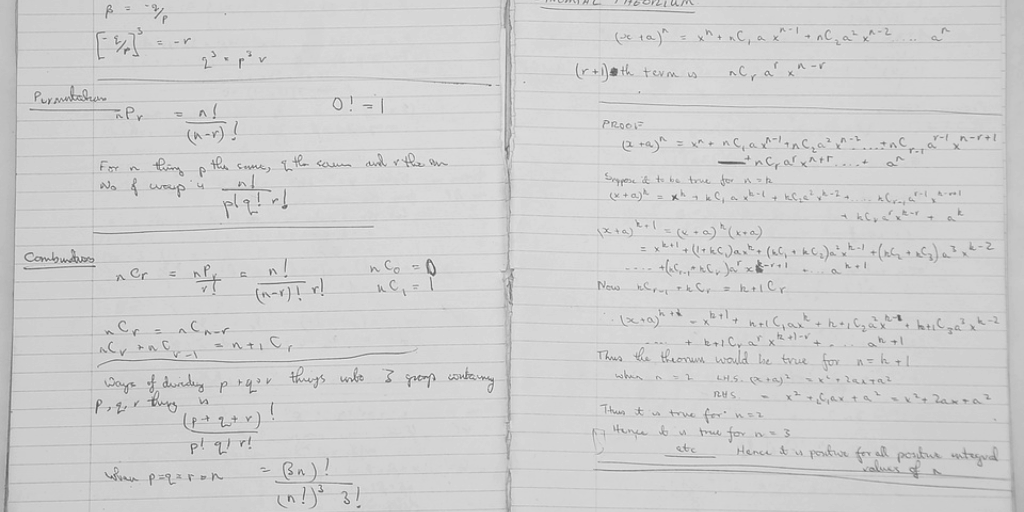 β = -q/p
[-q/r]³ = -r
q³ = p³ r
Permutation
nPr = n!/(n-r)!    0! = 1
For n things p the same, q the same and r the same
No of ways is n!/(p! q! r!)
Combinations
nCr = nPr/r! = n!/((n-r)! r!)    nC0 = 0
nC1 = 1
nCr = nCn-r
nCr + nCr-1 = n+1Cr
Ways of dividing p+q+r things into 3 group containing
p, q, r things is
(p+q+r)!/(p! q! r!)
when p=q=r=n = (3n)!/((n!)³ 3!)
THEORIUM
(x+a)ⁿ = xⁿ + nC1 a xⁿ⁻¹ + nC2 a² xⁿ⁻² .... aⁿ
(r+1)th term is nCr aʳ xⁿ⁻ʳ
PROOF
(x+a)ⁿ = xⁿ + nC1 a xⁿ⁻¹ + nC2 a² xⁿ⁻² ..... + nCr-1 aʳ⁻¹ xⁿ⁻ʳ⁺¹
+ nCr aʳ xⁿ⁺ʳ .... + aⁿ
Suppose it to be true for n = k
(x+a)ᵏ = xᵏ + kC1 a xᵏ⁻¹ + kC2 a² xᵏ⁻² + .... kCr-1 aʳ⁻¹
+ kCr aʳ xᵏ⁻ʳ + aᵏ
(x+a)ᵏ⁺¹ = (x+a)ᵏ (x+a)
= xᵏ⁺¹ + (1+kC1)axᵏ + (kC1 + kC2)a² xᵏ⁻¹ + (kC2 + kC3)a³ xᵏ⁻²
.... + (kCr-1 + kCr)aʳ xᵏ⁻ʳ⁺¹ + .. aᵏ⁺¹
Now kCr-1 + kCr = k+1Cr
(x+a)ᵏ⁺¹ = xᵏ⁺¹ + k+1C1axᵏ + k+1C2a²xᵏ⁻¹ + k+1C3a³xᵏ⁻²
.... + k+1Cr aʳ xᵏ⁺¹⁻ʳ + .... aᵏ⁺¹
Thus the theorium would be true for n = k+1
when n = 2 LHS. (x+a)² = x² + 2ax + a²
RHS = x² + 2C1ax + a² = x² + 2ax + a²
Thus it is true for n=2
Hence it is true for n = 3
etc Hence it is positive for all positive integral
values of n